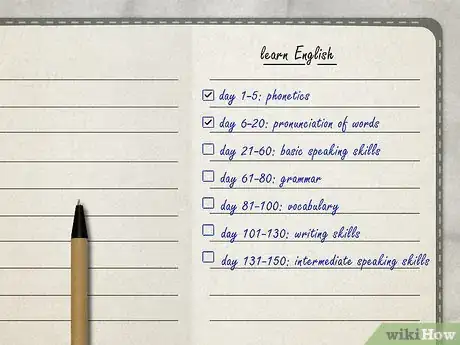 learn English
day 1-5: phonetics
day 6-20: pronunciation of words
day 21-60: basic speaking skills
day 61-80: grammar
day 81-100: vocabulary
day 101-130: writing skills
day 131-150: intermediate speaking skills
wikiHow